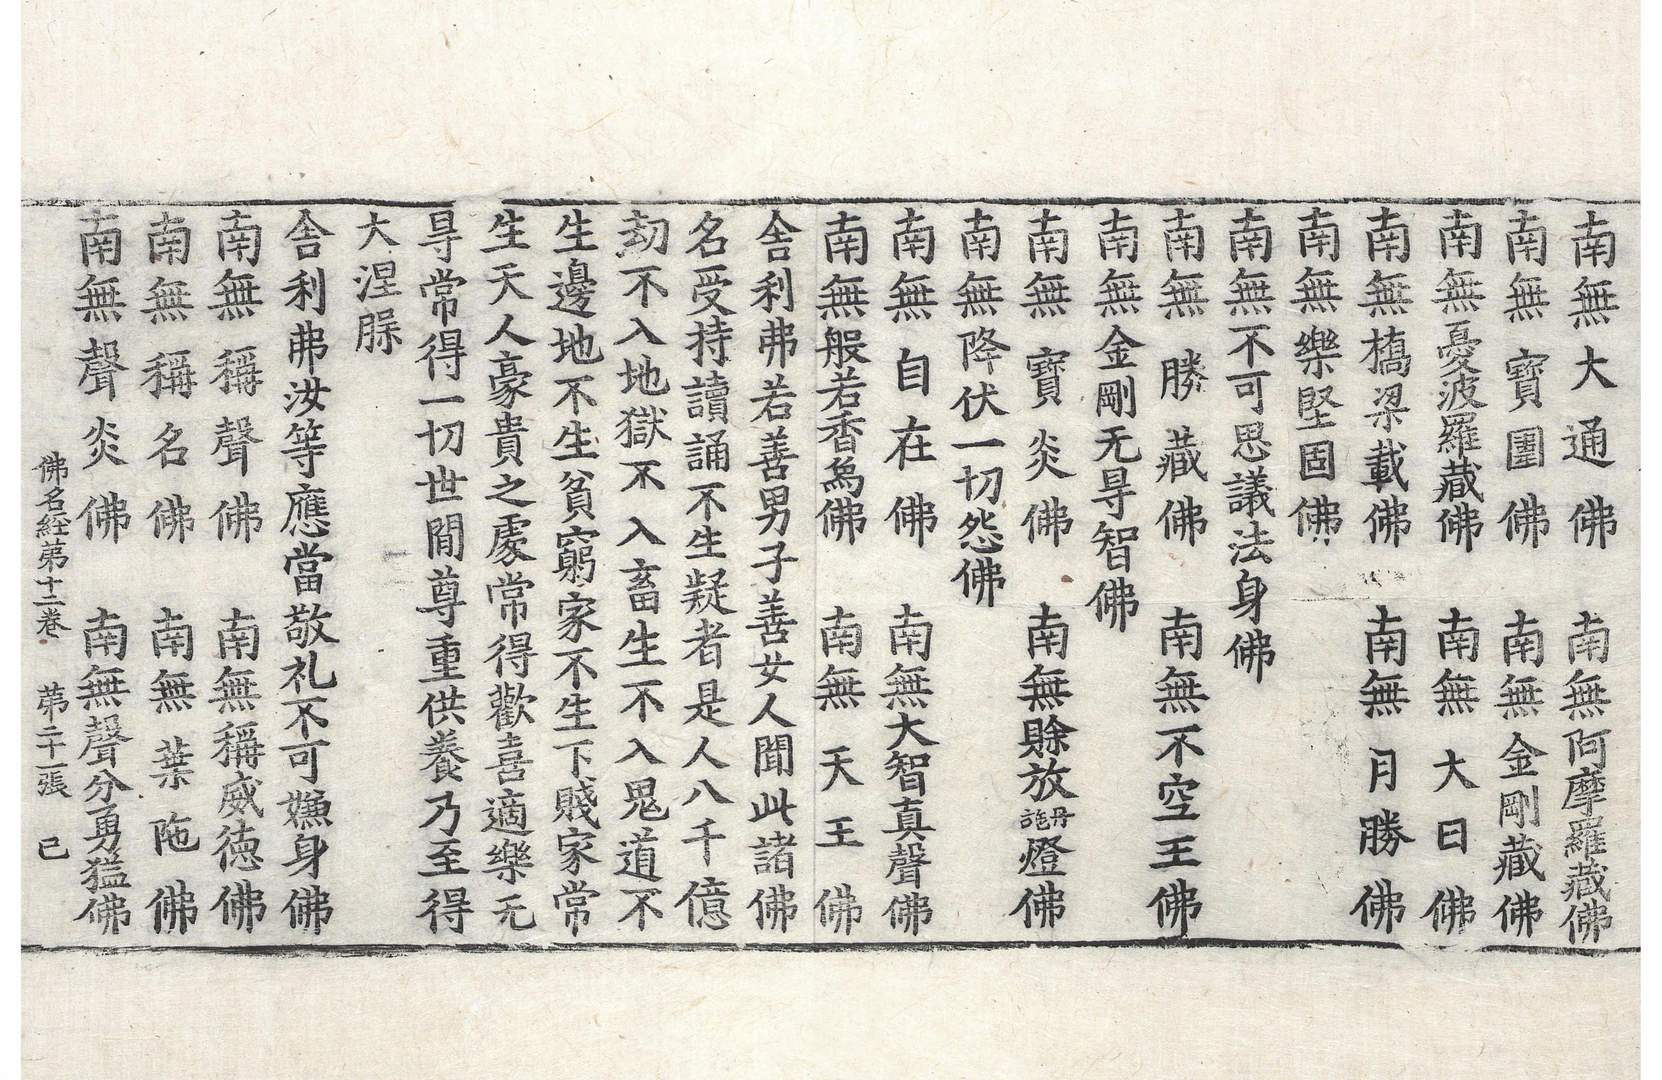 南無大通佛　南無阿摩羅藏佛
南無寶團佛　南無金剛藏佛
南無憂波羅藏佛　南無大日佛
南無橋梁載佛　南無月勝佛
南無樂堅固佛
南無不可思議法身佛
南無勝藏佛　南無不空王佛
南無金剛无㝵智佛
南無寶炎佛　南無賒放丹施燈佛
南無降伏一切怨佛
南無自在佛　南無大智真聲佛
南無般若香爲佛　南無天王佛
舍利弗若善男子善女人聞此諸佛
名受持讀誦不生疑者是人八千億
劫不入地獄不入畜生不入鬼道不
生邊地不生貧窮家不生下賤家常
生天人豪貴之處常得歡喜適樂无
㝵常得一切世間尊重供養乃至得
大涅槃
舍利弗汝等應當敬礼不可嫌身佛
南無稱聲佛　南無稱威德佛
南無稱名佛　南無葉陁佛
南無聲炎佛　南無聲分勇猛佛
佛名經第十二卷　第二十一張　己